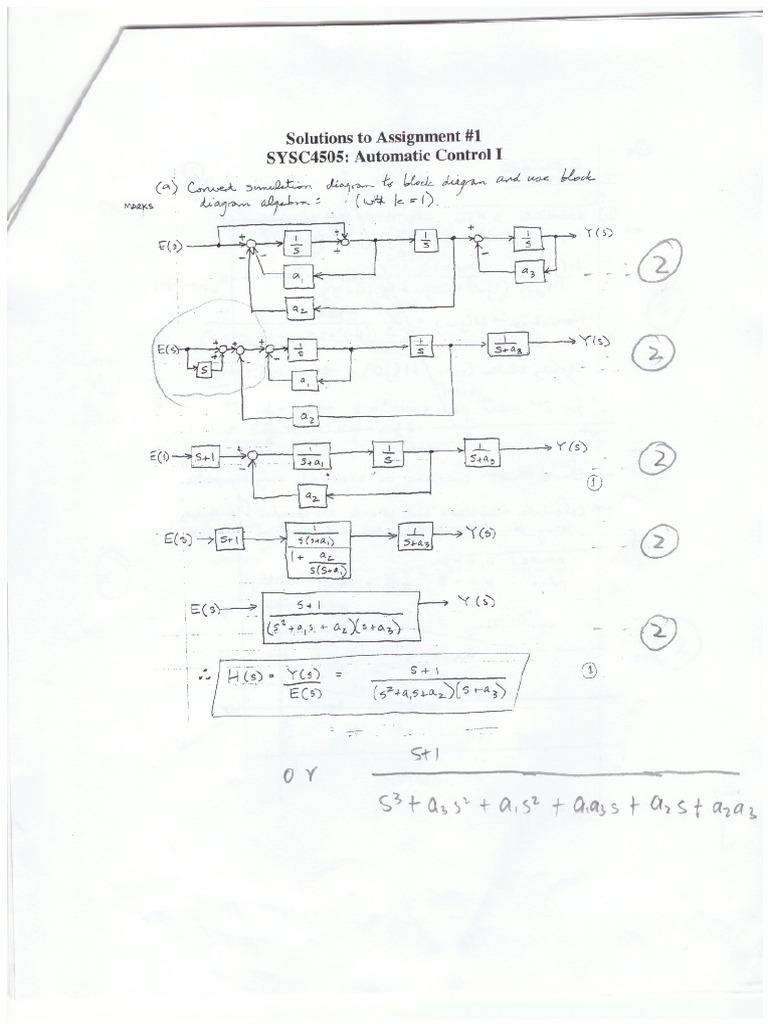 Solutions to Assignment #1
SYSC4505: Automatic Control I
(a) Convert simulation diagram to block diagram and use block
MARKS diagram algebra: (with k = 1).
E(s) + - - 1/s + + 1/s + - 1/s Y(s)
a1 a3 2
a2
E(s) + + + - + - 1/s 1/s 1/(s+a3) Y(s) 2
s a1
a2
E(s) s+1 + - 1/(s+a1) 1/s 1/(s+a3) Y(s) 2
a2 1
E(s) s+1 (1/(s(s+a1)))/(1 + a2/(s(s+a1))) 1/(s+a3) Y(s) 2
E(s) (s+1)/((s²+a1s+a2)(s+a3)) Y(s) 2
∴ H(s) = Y(s)/E(s) = (s+1)/((s²+a1s+a2)(s+a3)) 1
or (s+1)/(s³ + a3s² + a1s² + a1a3s + a2s + a2a3)